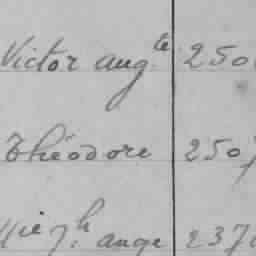 Victor aug.te 250
Théodore 250
ange 237